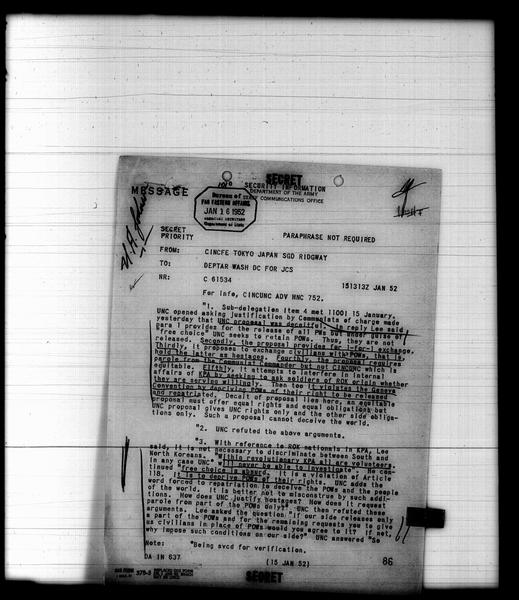 SECRET
SECURITY INFORMATION
DEPARTMENT OF THE ARMY
COMMUNICATIONS OFFICE
MESSAGE
Bureau of
FAR EASTERN AFFAIRS
JAN 16 1952
Department of State
SECRET
PRIORITY
PARAPHRASE NOT REQUIRED
FROM: CINCFE TOKYO JAPAN SGD RIDGWAY
TO: DEPTAR WASH DC FOR JCS
NR: C 61534
151313Z JAN 52
For info, CINCUNC ADV HNC 752.
"1. Sub-delegation Item 4 met 1100I 15 January.
UNC opened asking justification by Communists of charge made
yesterday that UNC proposal was deceitful. In reply Lee said
para 1 provides for the release of all PW but under guise of
"free choice" UNC seems to retain POWs. Thus, they are not
released. Secondly, the proposal provides for 1-for-1 exchange.
Thirdly, it proposes to exchange civilians with POWs, that is
hold the latter as hostage. Fourthly, the proposal requires
parole from the Communist commander but not CINCUNC which is
equitable. Fifthly, it attempts to interfere in internal
affairs of KPA to ask soldiers of ROK origin whether
they are serving willingly. Then too it violates the Geneva
Convention by depriving POWs of their right to be released
and repatriated. Deceit of proposal lies here. An equitable
proposal must offer equal rights and equal obligations but
UNC proposal gives UNC rights only and the other side obliga-
tions only. Such a proposal cannot deceive the world.
"2. UNC refuted the above arguments.
"3. With reference to ROK nationals in KPA, Lee
said, it is not necessary to discriminate between South and
North Koreans. Within revolutionary KPA all are volunteers.
In any case UNC will never be able to investigate. He con
tinued free choice is absurd. It is a violation of Article
118. It is to deprive POWs of their rights. UNC adds the
word forced to repatriation to deceive the POWs and the people
of the world. It is better not to misconstrue by such addi-
tions. How does UNC justify hostages? How does it request
parole from part of the POWs only?" UNC then refuted these
arguments. Lee asked the question "if our side releases only
a part of the POWs and for the remaining requests you to give
us civilians in place of POWs would you agree to it? If not,
why impose such conditions on our side?" UNC answered "So
Note: "Being svcd for verification.
DA IN 637
(15 JAN 52)
86
375-3
SECRET